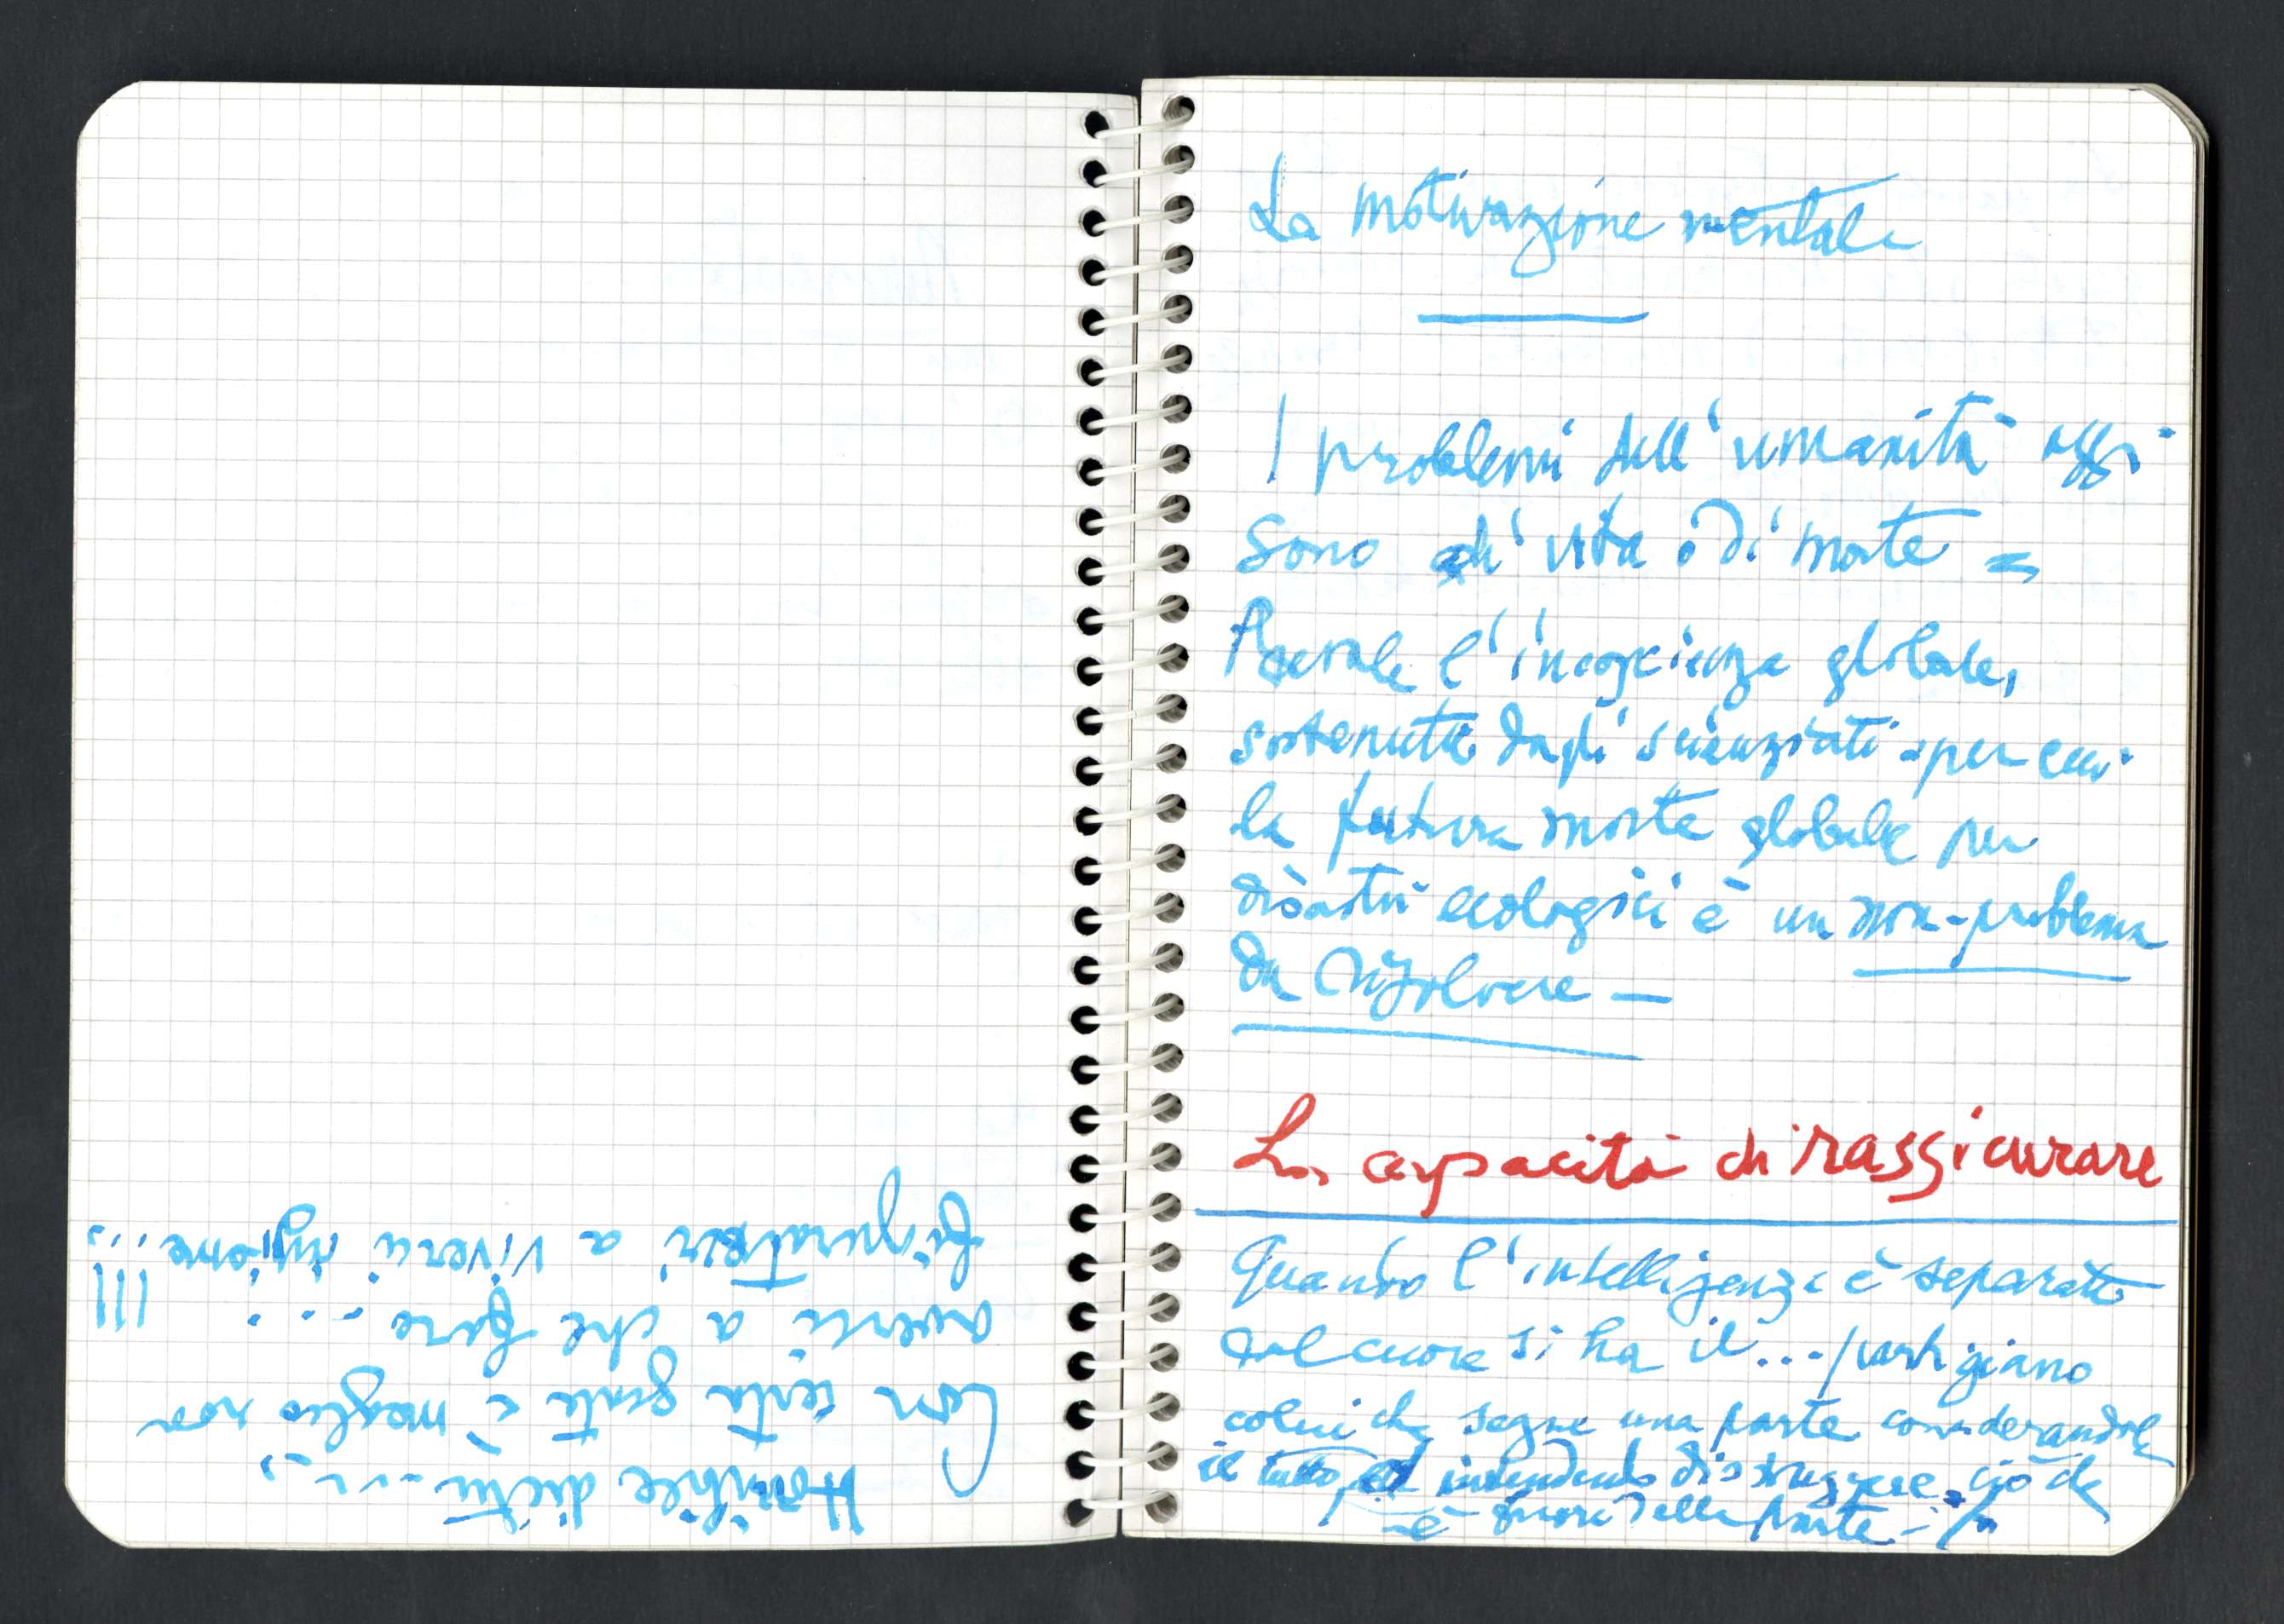 Horribile dictu....
Con certa gente è meglio non
averci a che fare .... !!!
figurateci a viverci insieme....
La motivazione mentale
I problemi dell'umanità oggi
sono di vita o di morte =
Prevale l'incoscienza globale,
sostenuta dagli scienziati per cui
la futura morte globale per
disastri ecologici è un non-problema
da risolvere —
La capacità di rassicurare
Quando l'intelligenza è separata
dal cuore si ha il... partigiano
colui che segue una parte considerandola
il tutto, ed intendendo distruggere ciò che
è fuori della parte -